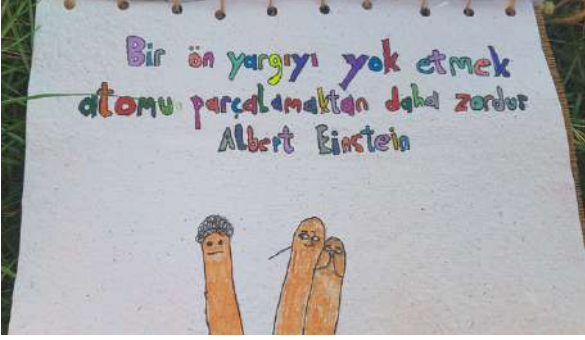 Bir ön yargıyı yok etmek
atomu parçalamaktan daha zordur
Albert Einstein